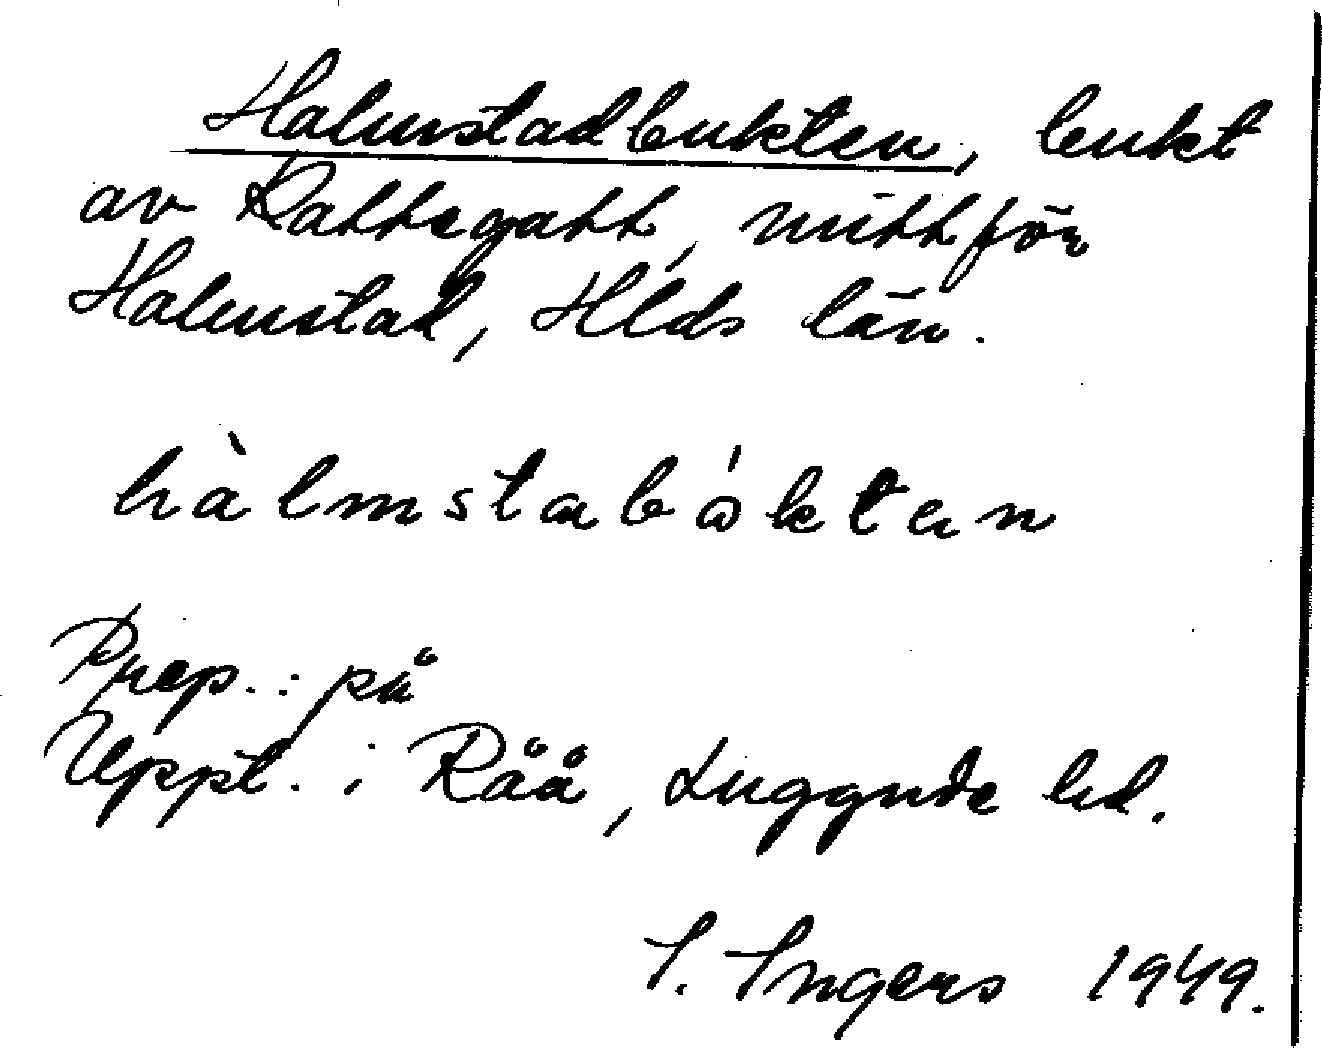 Halmstadbukten, bukt
av Kattegatt, mittför
Halmstad, Hlds län.
hàlmstabǻkten
Prep.: på
Uppt. i Råå, Luggude hd.
I. Ingers 1949.